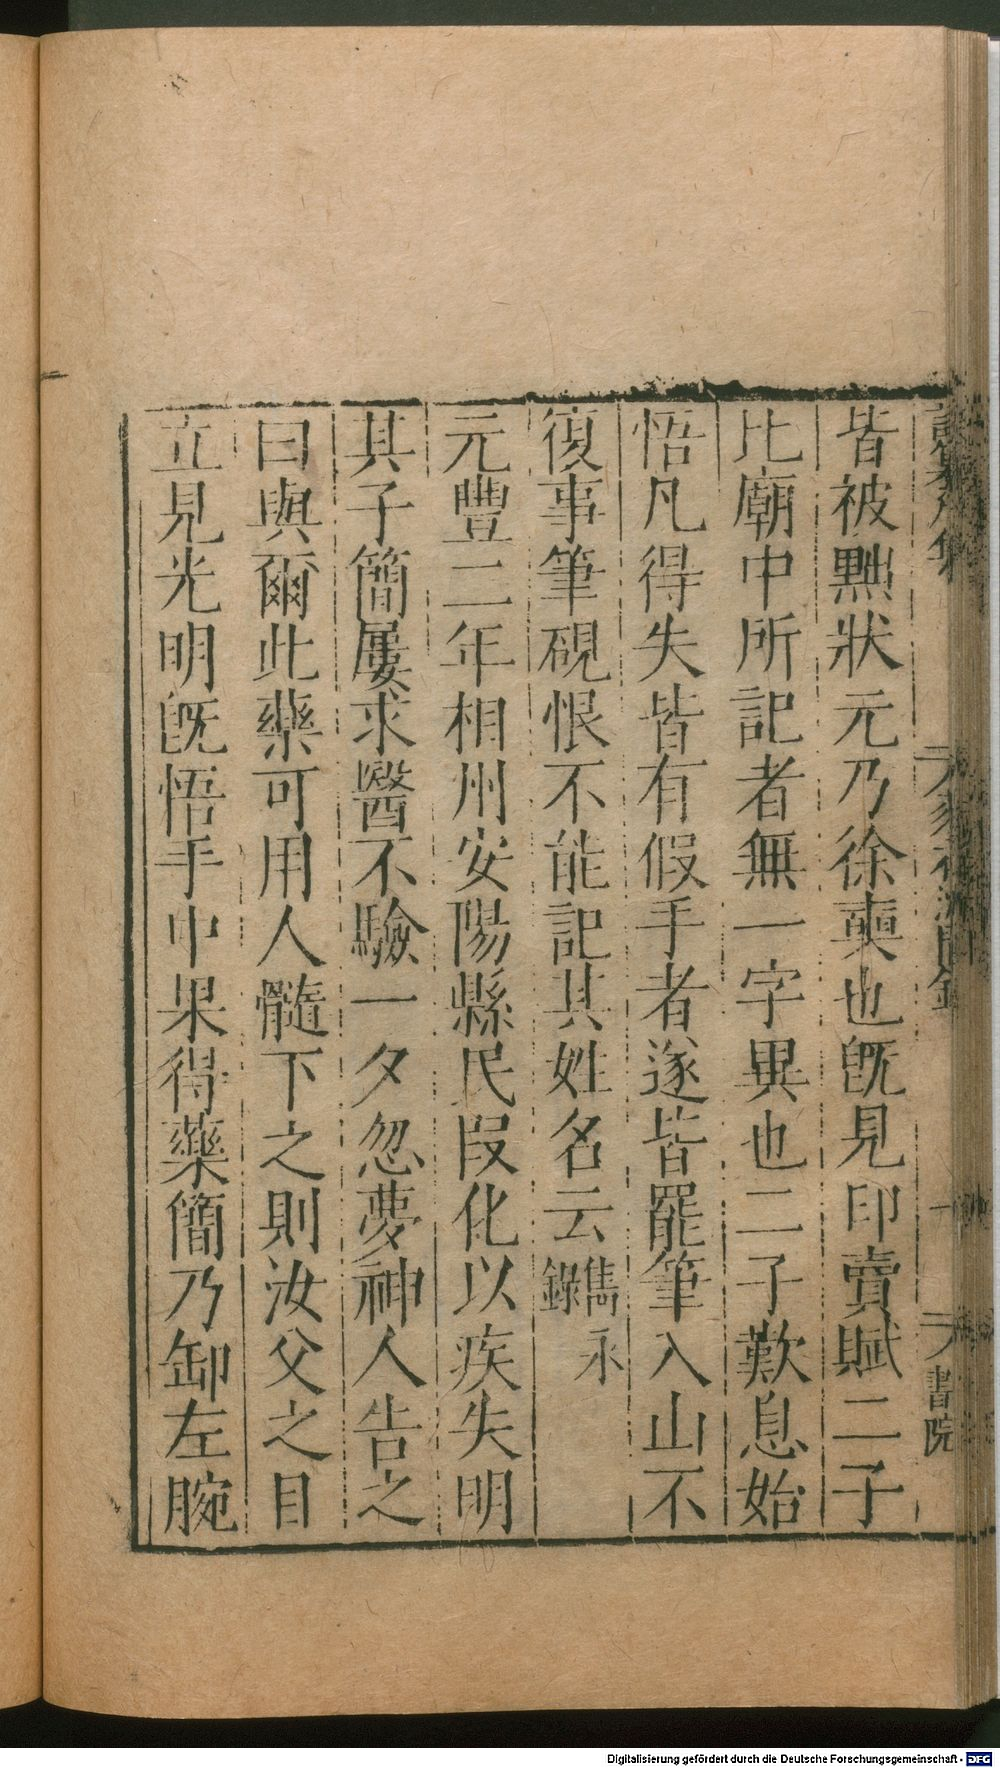 皆被黜狀元乃徐奭也旣見印賣賦二子
比廟中所記者無一字異也二子歎息始
悟凡得失皆有假手者遂皆罷筆入山不
復事筆硯恨不能記其姓名云雋永錄
元豐二年相州安陽縣民段化以疾失明
其子簡屢求醫不驗一夕忽夢神人告之
曰與爾此藥可用人髓下之則汝父之目
立見光明旣悟手中果得藥簡乃卸左腕
書院
Digitalisierung gefördert durch die Deutsche Forschungsgemeinschaft - DFG